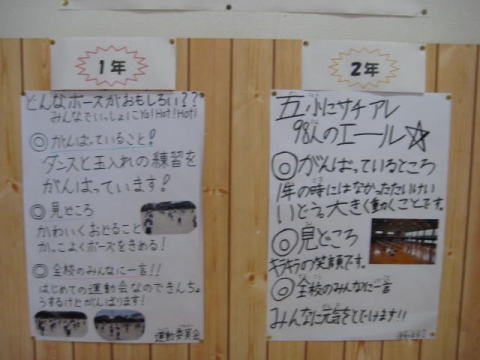 1年
どんなポーズがおもしろい??
みんなでいっしょにYo!Hot!Hot!
◎がんばっていること!
ダンスと玉入れの練習を
がんばっています!
◎見どころ
かわいくおどること
かっこよくポーズをきめる!
◎全校のみんなに一言!!
はじめての運動会なのできんちょ
うするけどがんばります!
運動委員会
2年
五小にサチアレ
98人のエール☆
◎がんばっているところ
1年の時にはなかったたいけい
いどう。大きく動くことです。
◎見どころ
キラキラの笑顔です。
◎全校のみんなに一言
みんなに元気をとどけます!!